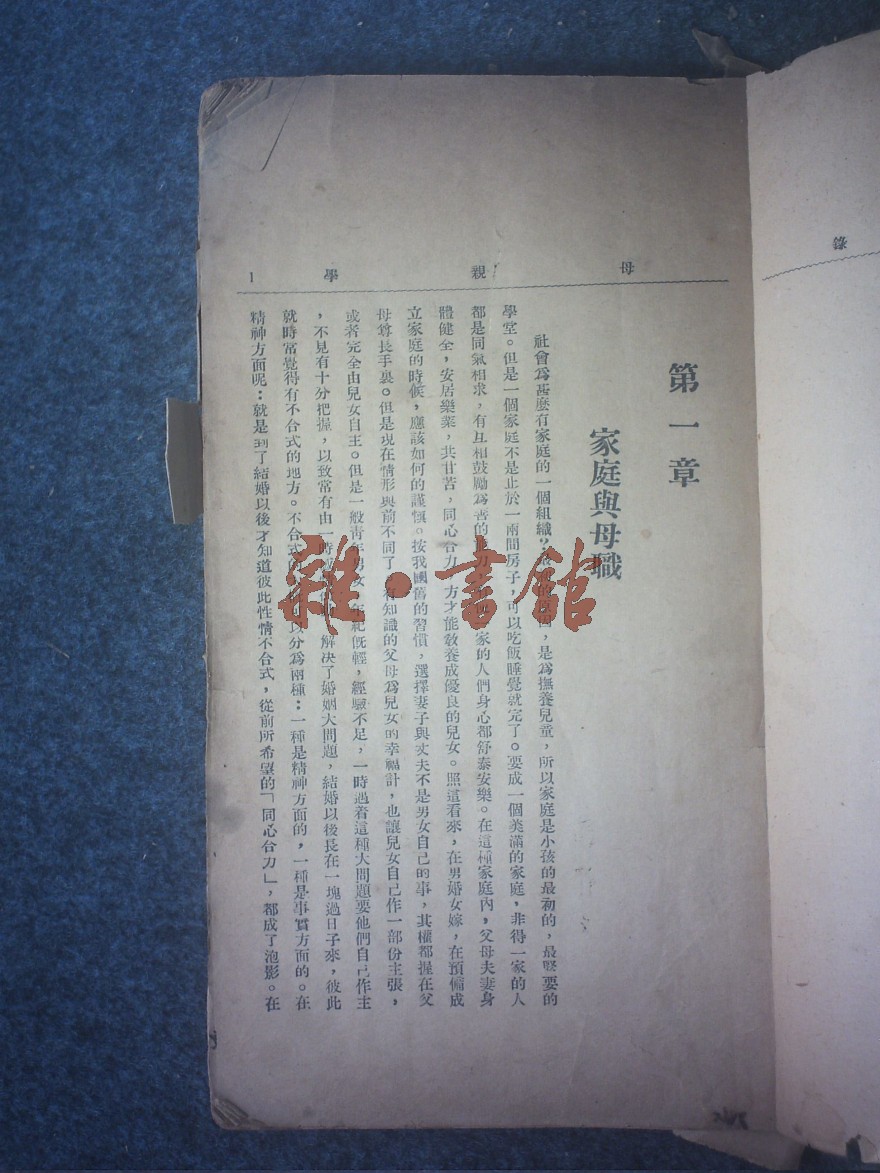 母親學 1
第一章
家庭與母職
社會爲甚麽有家庭的一個組織？是,是爲撫養兒童，所以家庭是小孩的最初的，最緊要的
學堂。但是一個家庭不是止於一兩間房子，可以吃飯睡覺就完了。要成一個美滿的家庭，非得一家的人
都是同氣相求，有互相鼓勵爲善的家的人們身心都舒泰安樂。在這種家庭內，父母夫妻身
體健全，安居樂業，共甘苦，同心合力，方才能教養成優良的兒女。照這看來，在男婚女嫁，在預備成
立家庭的時候，應該如何的謹愼。按我國舊的習慣，選擇妻子與丈夫不是男女自己的事，其權都握在父
母尊長手裏。但是現在情形與前不同了，有知識的父母爲兒女的幸福計，也讓兒女自己作一部份主張，
或者完全由兒女自主。但是一般靑年男女，年紀旣輕，經驗不足，一時遇着這種大問題要他們自己作主
，不見有十分把握，以致常有由一時解决了婚姻大問題，結婚以後長在一塊過日子來，彼此
就時常覺得有不合式的地方。不合式以分爲兩種：一種是精神方面的，一種是事實方面的。在
精神方面呢：就是到了結婚以後才知道彼此性情不合式，從前所希望的「同心合力」，都成了泡影。在
錄
雜·書館